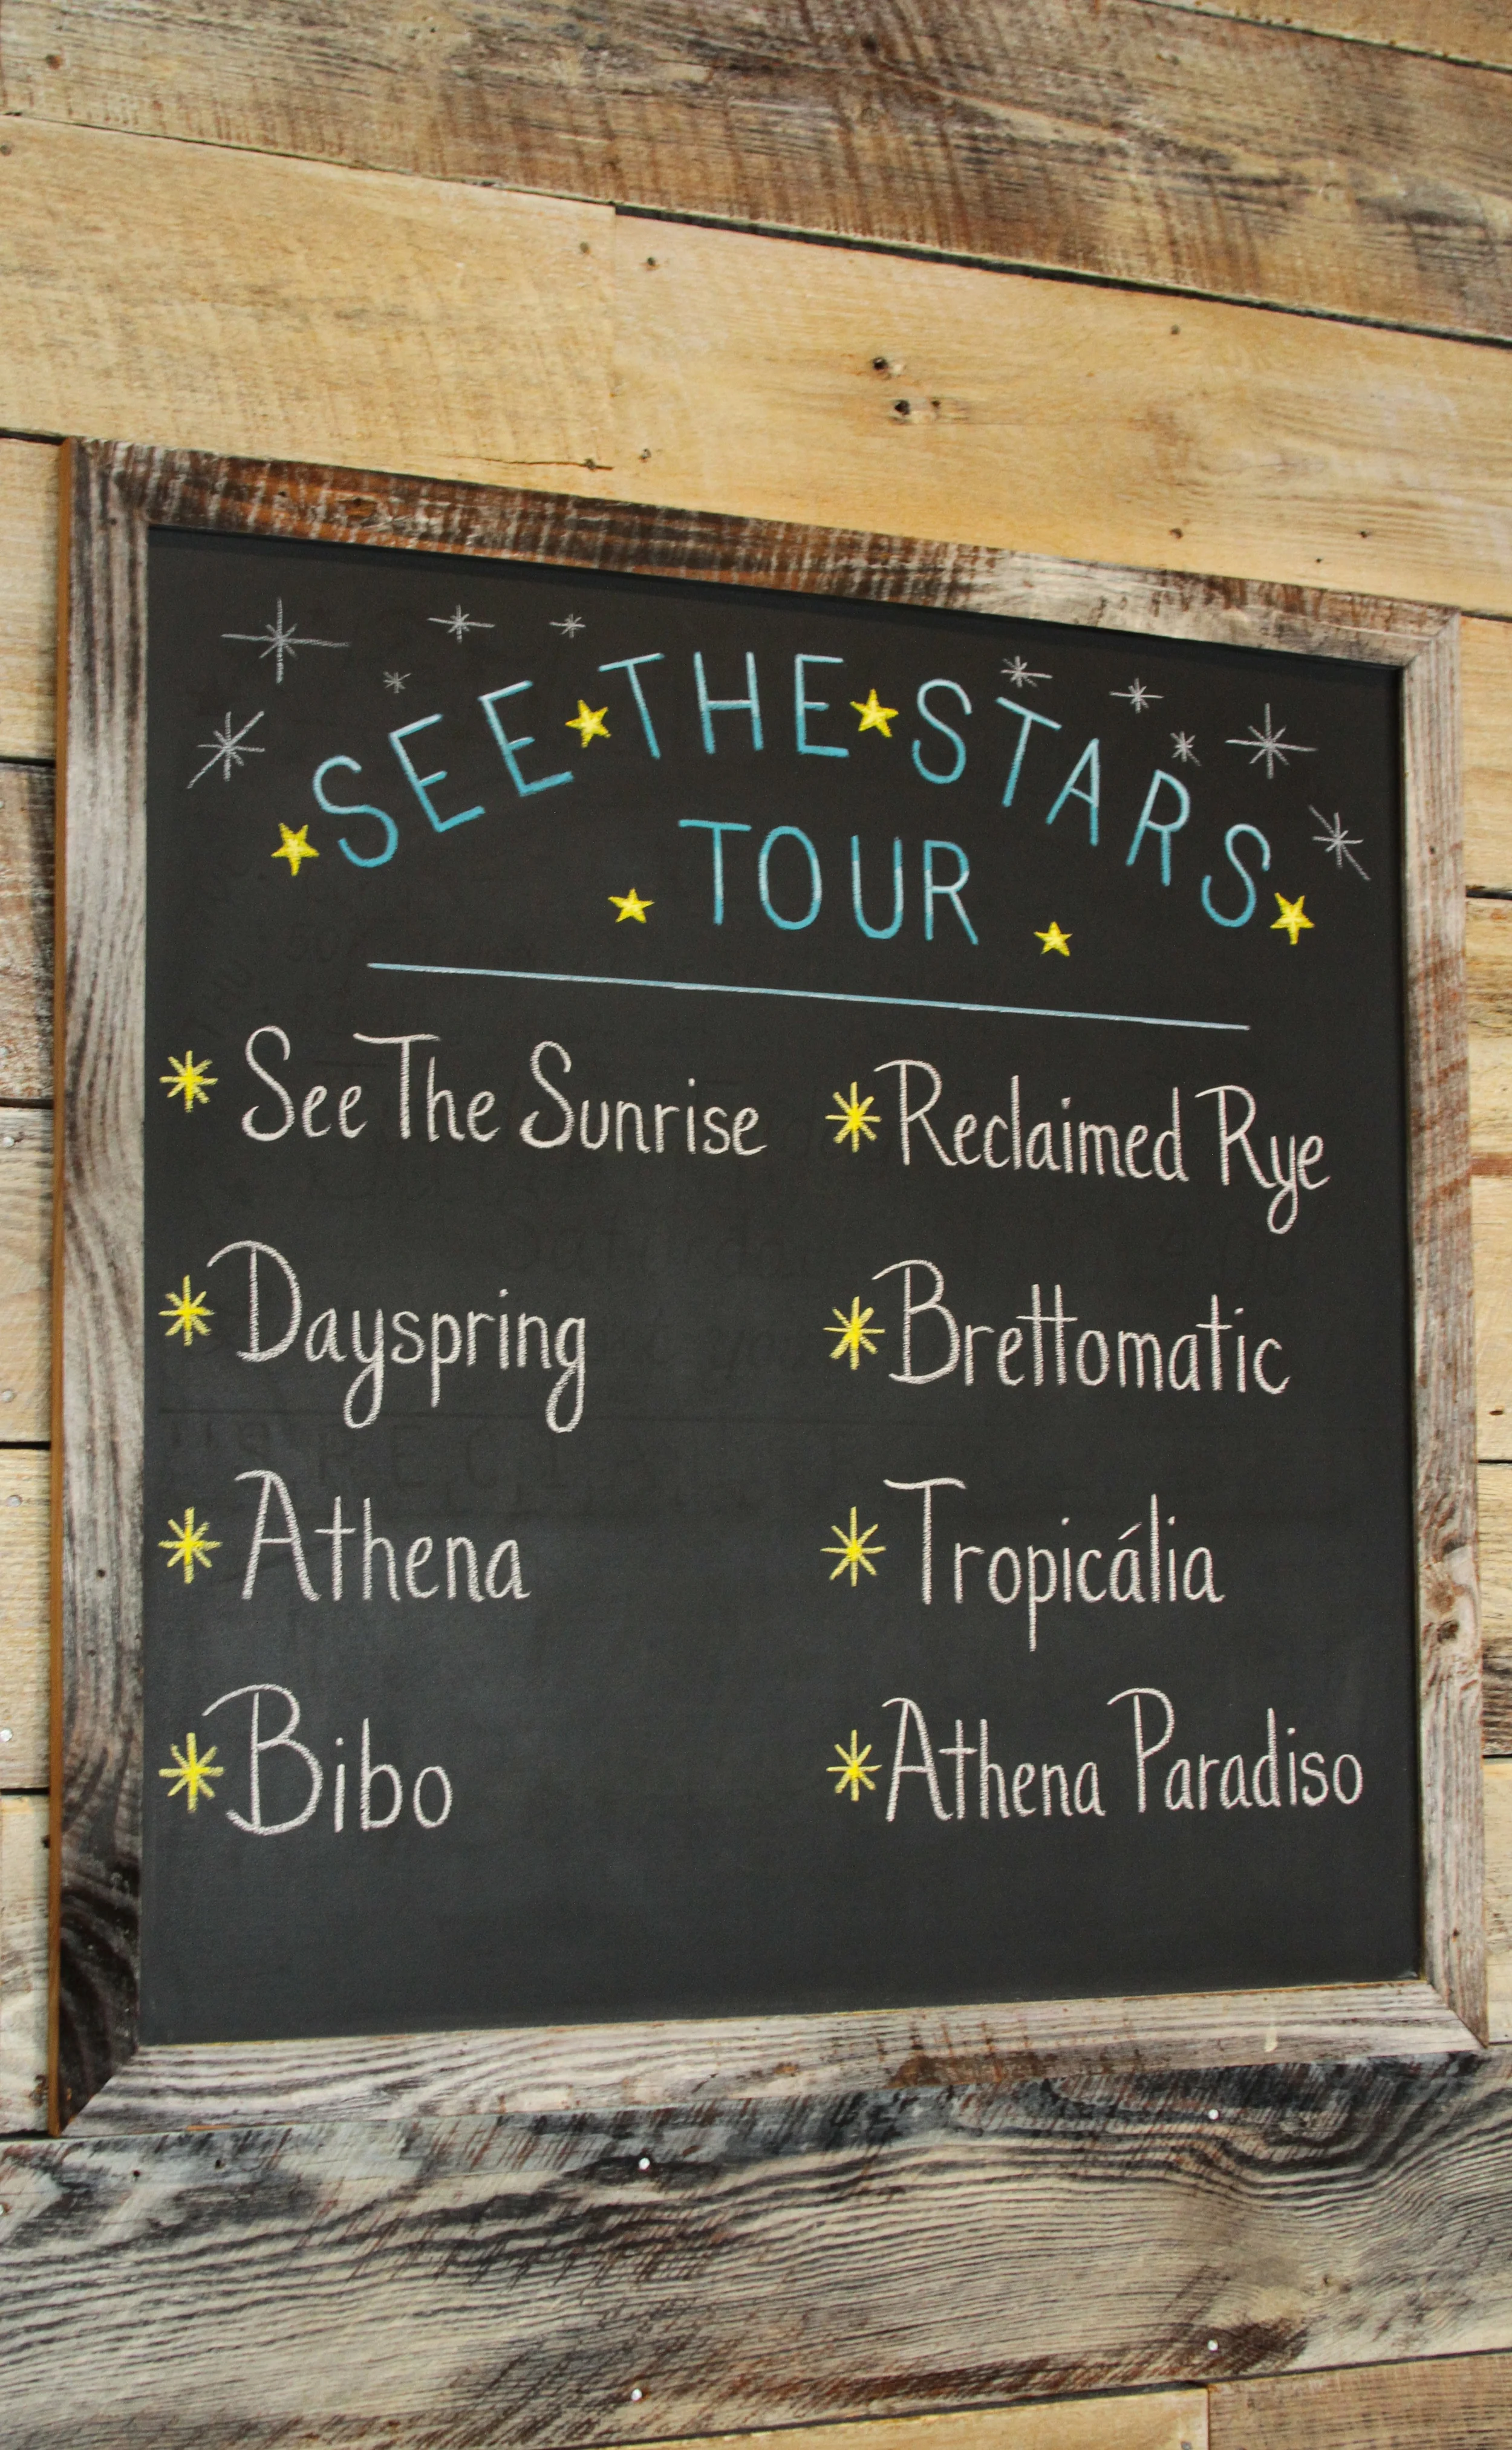 SEE THE STARS
TOUR
See The Sunrise
Dayspring
Athena
Bibo
Reclaimed Rye
Brettomatic
Tropicália
Athena Paradiso